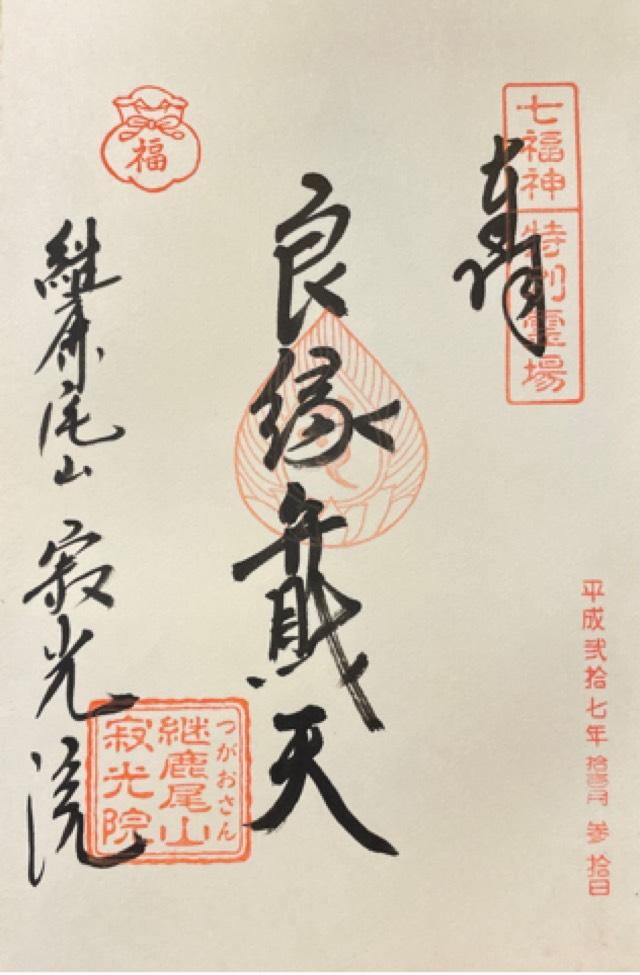 七福神 特別霊場
奉拝
平成弐拾七年 拾壱月 参拾日
良縁弁財天
福
継鹿尾山 寂光院
つがおさん
継鹿尾山
寂光院